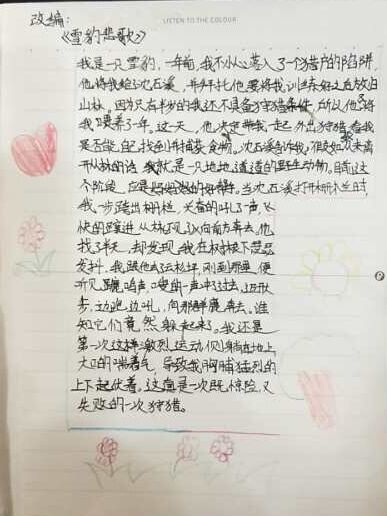 改编:
LISTEN TO THE COLOUR
《雪豹悲歌》
我是一只雪豹,一年前,我不小心落入了个猎户的陷阱,
他将我给沈石溪,并拜托他要将我训练好之后放归
山林。因为只有半岁的我还不具备狩猎条件,所以他将
我喂养了一年。这一天,他决定带我一起外出狩猎,看我
是否能自己找到并捕获食物。沈石溪告诉我,假如从未离
开从林的话,我就是一只地地道道的野生动物。目前这
个阶段,应是
当沈石溪打开栅栏时,
我一步踏出栅栏,兴奋的吼了声,飞
快的蹿进从林
向前方奔去。他
找了半天,却发现我在树枝下瑟瑟
发抖。我跟他去了松坪,刚到那里,便
听见鹿鸣声,
一声冲了过去,迈开
步,边跑边吼,向那群鹿奔去。谁
知它们竟然躲起来了。我还是
第一次这样激烈运动,侧身躺在地上
大口的喘着气,导致我胸脯猛烈的
上下起伏着,这真是一次既惊险又
失败的一次狩猎。